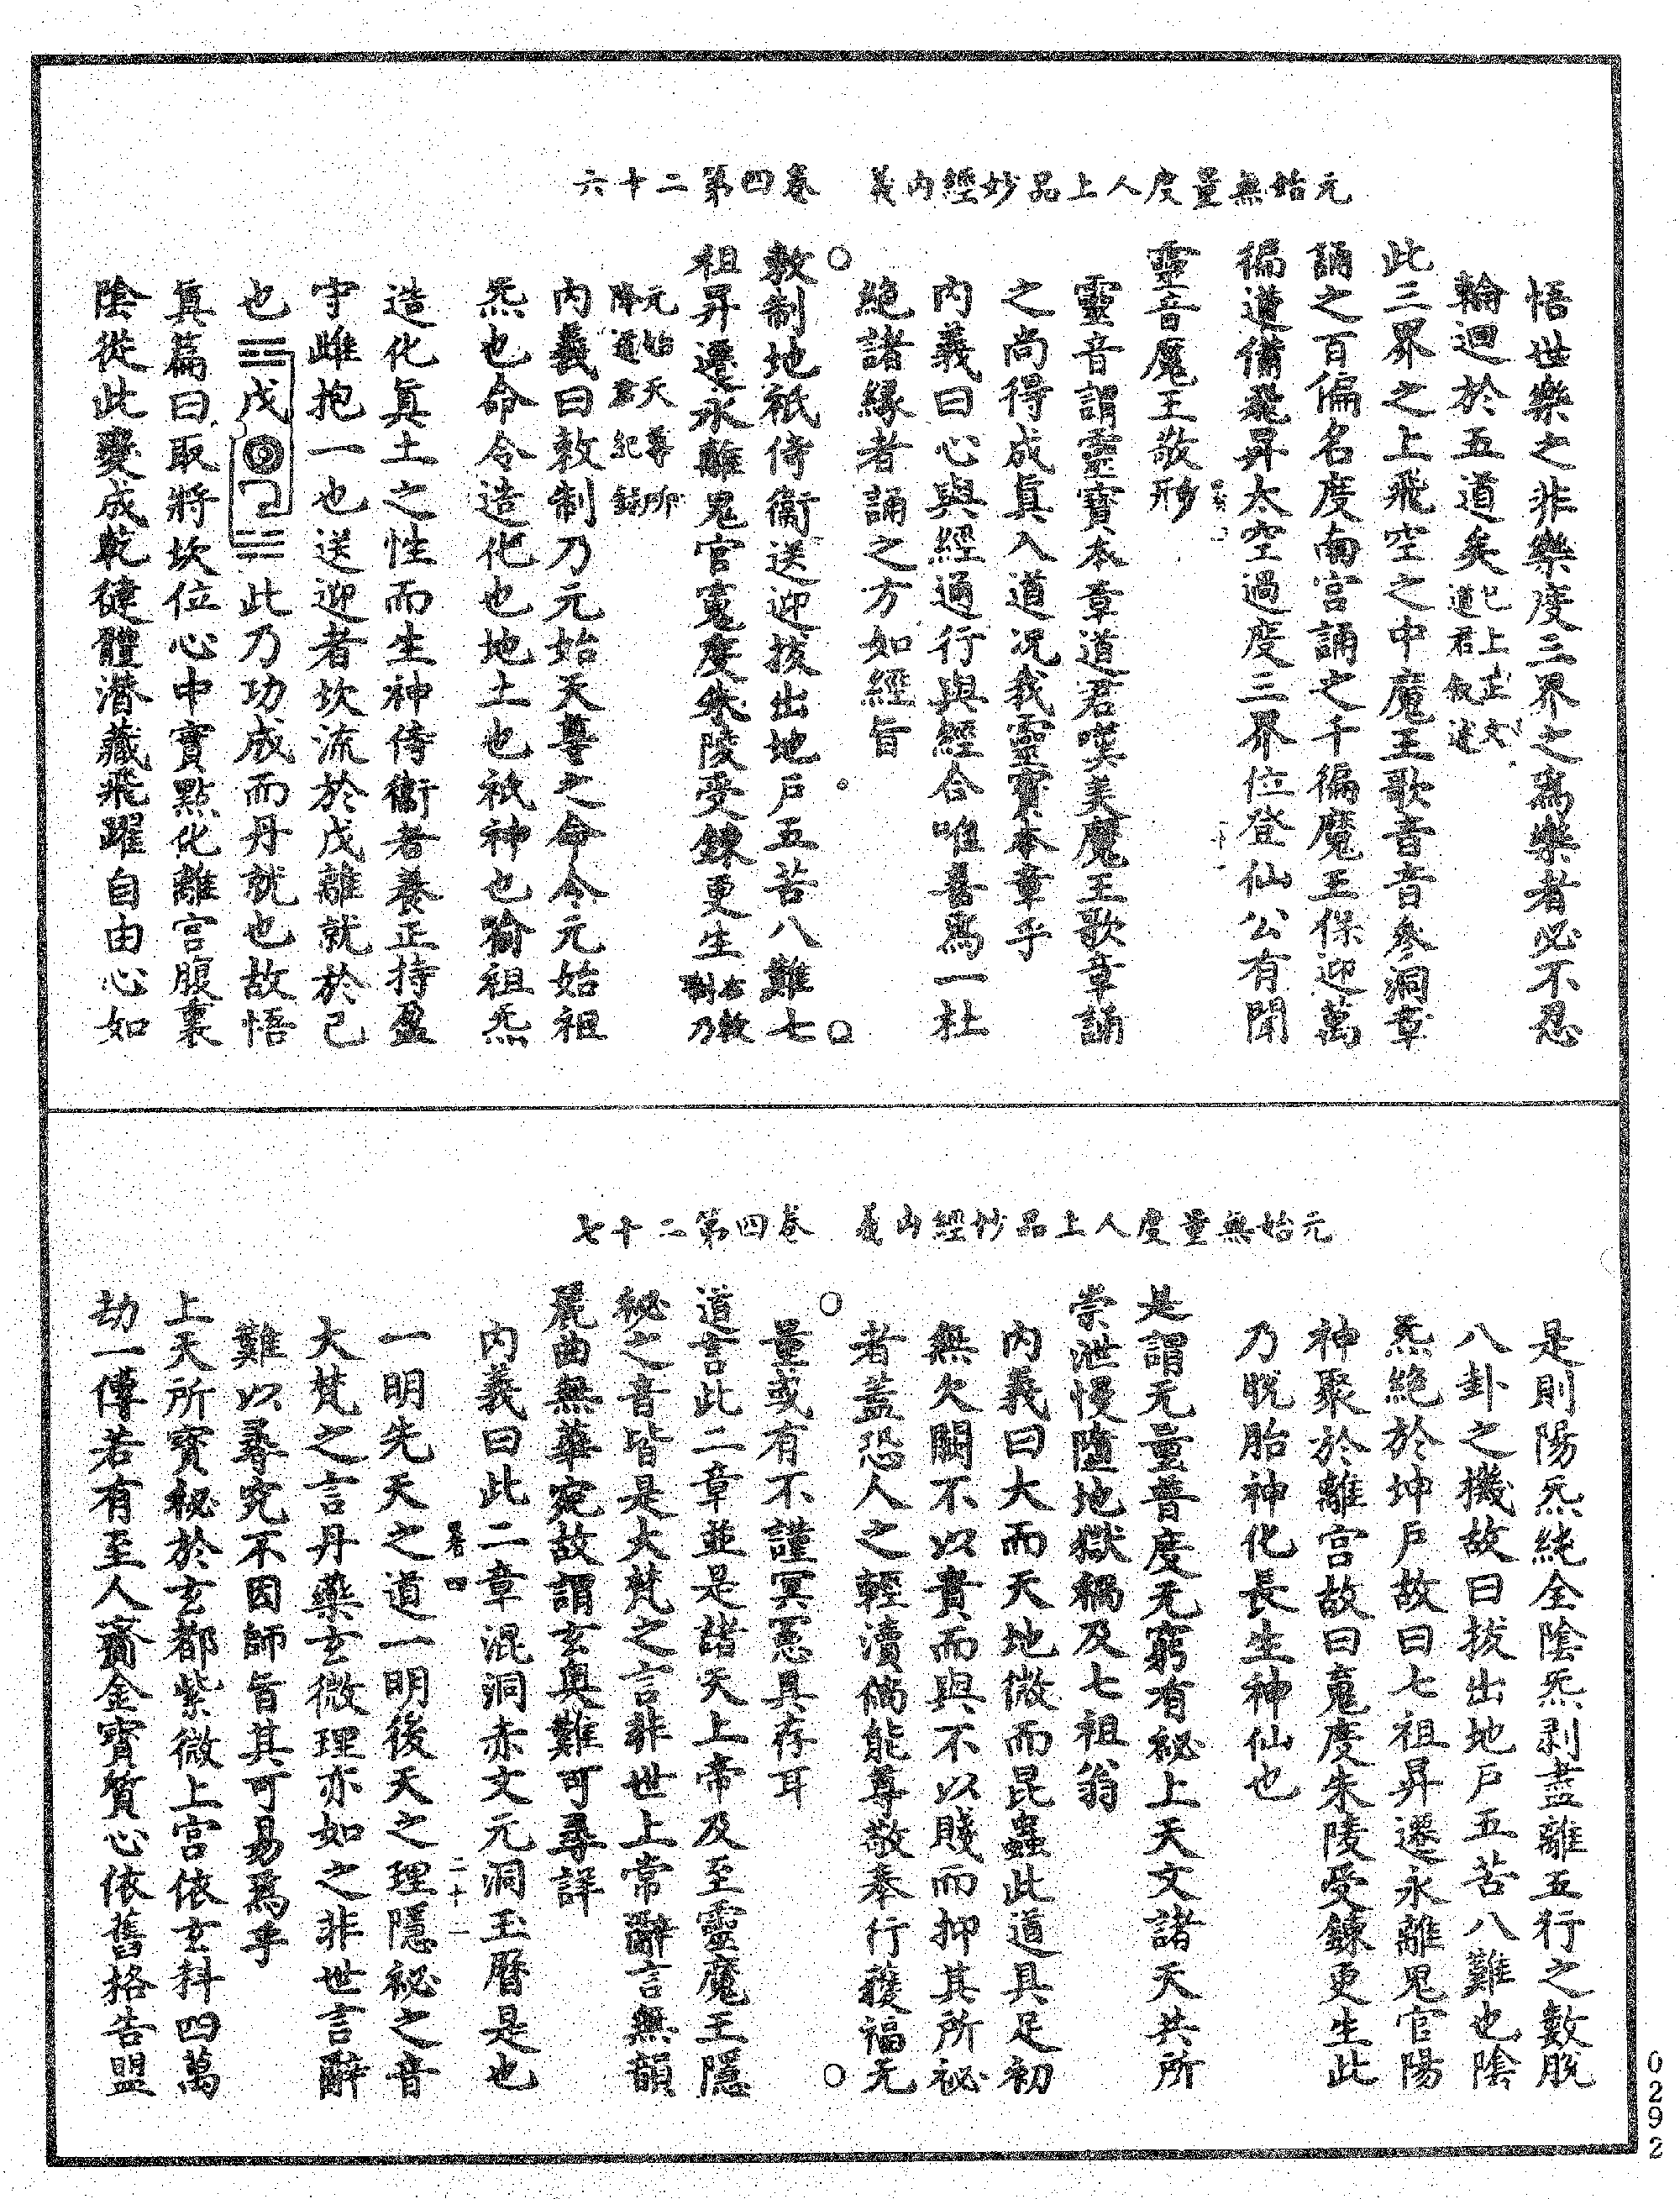 元始無量度人上品妙經內義　卷四第二十六
悟世樂之非樂度三界之為樂者必不忍
輪迴於五道矣已上正文道君叙述
此三界之上飛空之中魔王歌音音參洞章
誦之百徧名度南宮誦之千徧魔王保迎萬
徧道備飛昇太空過度三界位登仙公有聞
靈音魔王敬形
靈音謂靈寶本章道君嘆美魔王歌章誦
之尚得成真入道況我靈寶本章乎
內義曰心與經通行與經合唯善為一杜
絕諸緣者誦之方如經旨
○
敕制地祇侍衞送迎拔出地戶五苦八難七
祖昇遷永離鬼官䰟度朱陵受鍊更生右敕制乃
元始天尊所降道君紀錄
內義曰敕制乃元始天尊之命令元始祖
炁也命令造化也地土也祇神也喻祖炁
造化真土之性而生神侍衞者養正持盈
守雌抱一也送迎者坎流於戊離就於己
也☰戊己☷此乃功成而丹就也故悟
真篇曰取將坎位心中實點化離宮腹裏
陰從此變成乾健體潛藏飛躍自由心如
元始無量度人上品妙經內義　卷四第二十七
是則陽炁純全陰炁剥盡離五行之數脫
八卦之機故曰拔出地戶五苦八難也陰
炁絕於坤戶故曰七祖昇遷永離鬼官陽
神聚於離宮故曰䰟度朱陵受鍊更生此
乃脫胎神化長生神仙也
是謂无量普度无窮有祕上天文諸天共所
崇泄慢墮地獄禍及七祖翁
內義曰大而天地微而昆蟲此道具足初
無欠闕不以貴而與不以賤而抑其所祕
者蓋恐人之輕瀆倘能尊敬奉行獲福无
量或有不謹冥憲具存耳
○
道言此二章並是諸天上帝及至靈魔王隱
祕之音皆是大梵之言非世上常辭言無韻
麗曲無華宛故謂玄奧難可尋詳
內義曰此二章混洞赤文元洞玉曆是也
一明先天之道一明後天之理隱祕之音
大梵之言丹藥玄微理亦如之非世言辭
難以尋究不因師旨其可易為乎
上天所寶祕於玄都紫微上宮依玄科四萬
劫一傳若有至人齎金寶質心依舊格告盟
0292